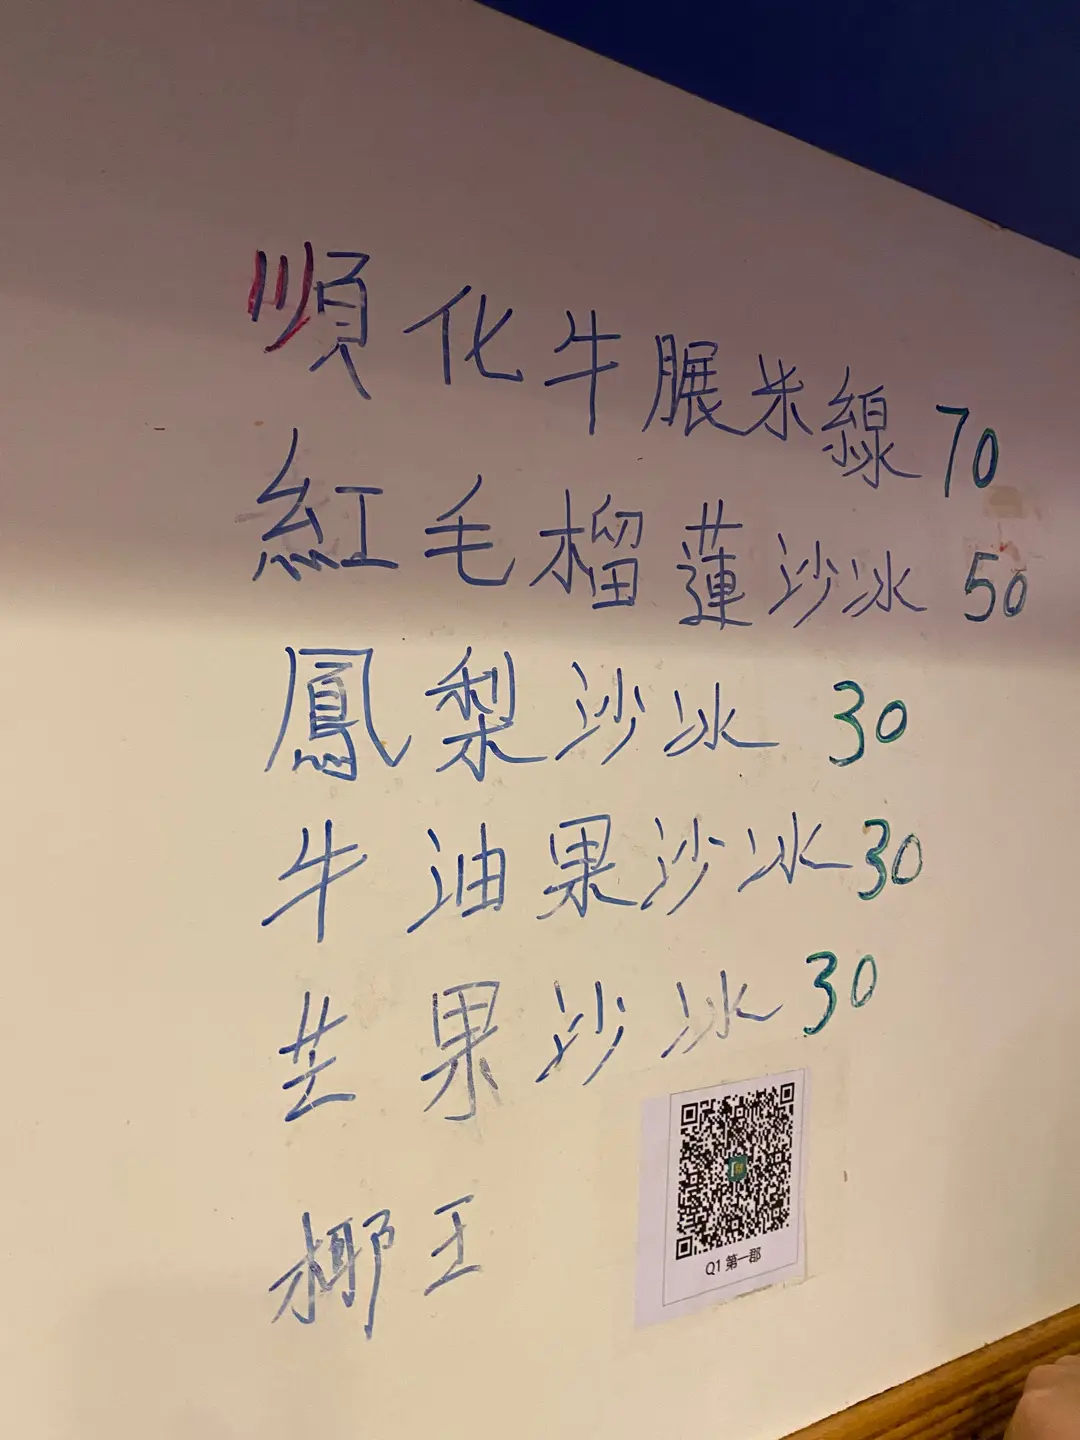 順化牛𦟌米線 70
紅毛榴蓮沙冰 50
鳳梨沙冰 30
牛油果沙冰 30
芒果沙冰 30
椰王
Q1 第一郡